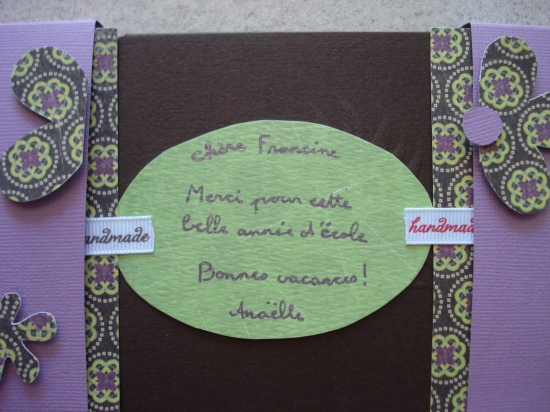 chère Francine
Merci pour cette
belle année d'école
Bonnes vacances!
Anaëlle
handmade
handmade